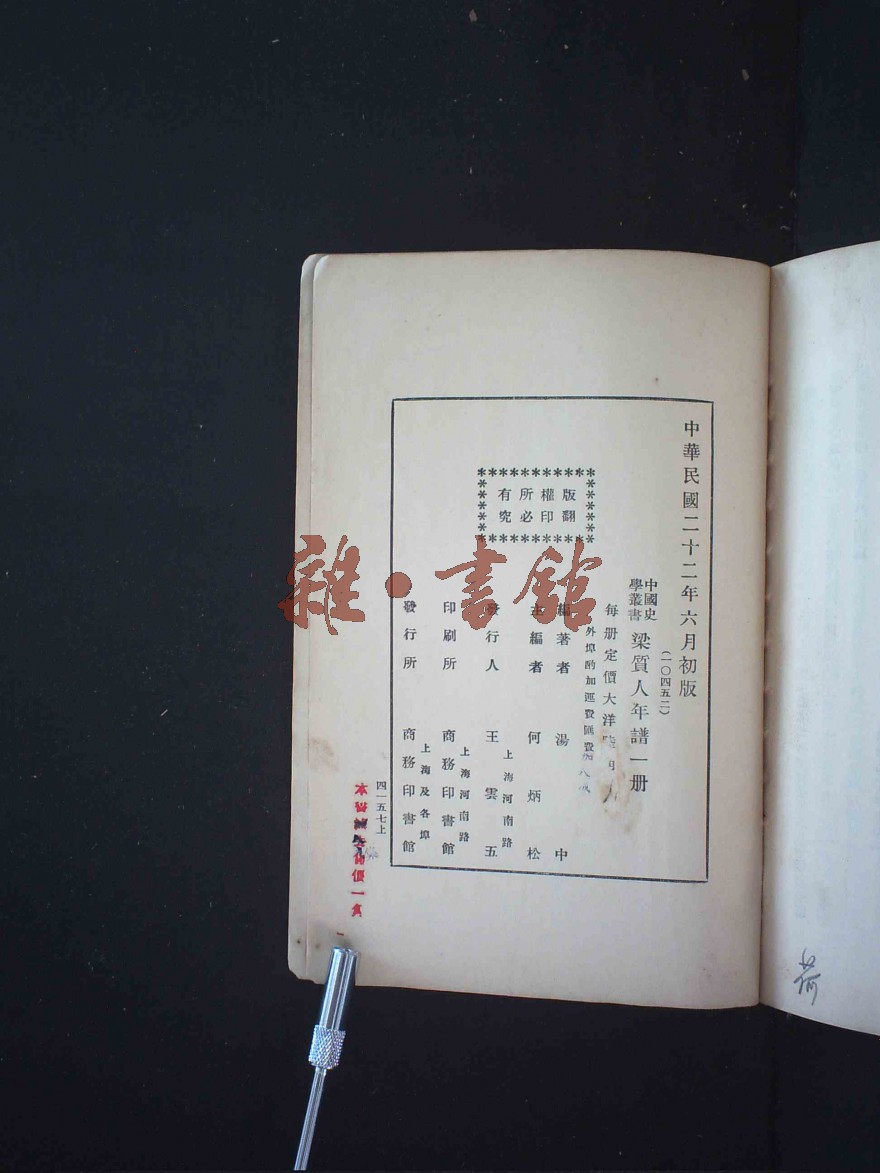 中華民國二十二年六月初版
(一〇四五二)
中國史學叢書 梁質人年譜一册
每册定價大洋
外埠酌加運費匯費
版權所有
翻印必究
編著者 湯中
主編者 何炳松
發行人 王雲五
上海河南路
印刷所 商務印書館
上海河南路
發行所 商務印書館
上海及各埠
四一五七上
本書 價一
雜·書館